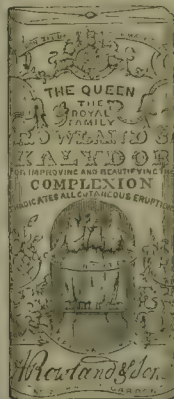 THE QUEEN
THE
ROYAL
FAMILY
ROWLAND'S
KALYDOR
FOR IMPROVING AND BEAUTIFYING THE
COMPLEXION
ERADICATES ALL CUTANEOUS ERUPTIONS
A Rowland & Son